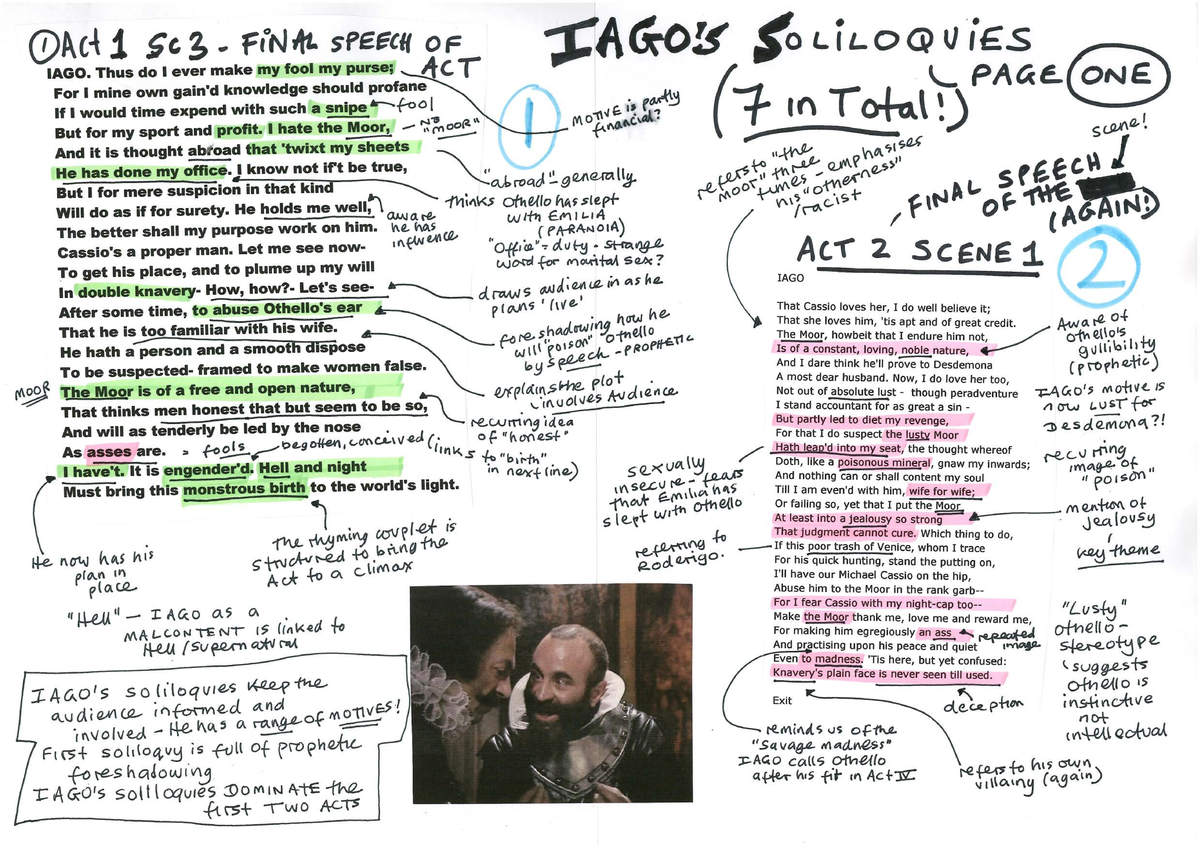 IAGO'S SOLILOQUIES
PAGE ONE
(7 in Total!)
① Act 1 Sc 3 - FINAL SPEECH OF
ACT
IAGO. Thus do I ever make my fool my purse;
For I mine own gain'd knowledge should profane
If I would time expend with such a snipe
But for my sport and profit. I hate the Moor,
And it is thought abroad that 'twixt my sheets
He has done my office. I know not if't be true,
But I for mere suspicion in that kind
Will do as if for surety. He holds me well,
The better shall my purpose work on him.
Cassio's a proper man. Let me see now-
To get his place, and to plume up my will
In double knavery- How, how?- Let's see-
After some time, to abuse Othello's ear
That he is too familiar with his wife.
He hath a person and a smooth dispose
To be suspected- framed to make women false.
The Moor is of a free and open nature,
That thinks men honest that but seem to be so,
And will as tenderly be led by the nose
As asses are.
I have't. It is engender'd. Hell and night
Must bring this monstrous birth to the world's light.
1
fool
NB
"MOOR"
MOTIVE is partly
financial?
"abroad" - generally
thinks Othello has slept
with EMILIA
(PARANOIA)
"Office" = duty - strange
word for marital sex?
aware
he has
influence
draws audience in as he
plans 'live'
foreshadowing how he
will "poison" Othello
by speech - PROPHETIC
explains the plot
involves AUDIENCE
MOOR
recurring idea
of "honest"
= fools
begotten, conceived (links
to "birth"
in next line)
He now has his
plan in
place
The rhyming couplet is
structured to bring the
Act to a climax
"Hell" - IAGO as a
MALCONTENT is linked to
Hell/supernatural
IAGO's soliloquies keep the
audience informed and
involved - He has a range of MOTIVES!
First soliloquy is full of prophetic
foreshadowing
IAGO's soliloquies DOMINATE the
first TWO ACTS
scene!
FINAL SPEECH
OF THE
(AGAIN!)
ACT 2 SCENE 1
2
IAGO
That Cassio loves her, I do well believe it;
That she loves him, 'tis apt and of great credit.
The Moor, howbeit that I endure him not,
Is of a constant, loving, noble nature,
And I dare think he'll prove to Desdemona
A most dear husband. Now, I do love her too,
Not out of absolute lust - though peradventure
I stand accountant for as great a sin -
But partly led to diet my revenge,
For that I do suspect the lusty Moor
Hath leap'd into my seat, the thought whereof
Doth, like a poisonous mineral, gnaw my inwards;
And nothing can or shall content my soul
Till I am even'd with him, wife for wife;
Or failing so, yet that I put the Moor
At least into a jealousy so strong
That judgment cannot cure. Which thing to do,
If this poor trash of Venice, whom I trace
For his quick hunting, stand the putting on,
I'll have our Michael Cassio on the hip,
Abuse him to the Moor in the rank garb--
For I fear Cassio with my night-cap too--
Make the Moor thank me, love me and reward me,
For making him egregiously an ass
And practising upon his peace and quiet
Even to madness. 'Tis here, but yet confused:
Knavery's plain face is never seen till used.
Exit
refers to "the
moor" three
times - emphasises
his "otherness"
/racist
Aware of
Othello's
gullibility
(prophetic)
IAGO's motive is
now LUST for
DESDEMONA?!
recurring
image of
"poison"
sexually
insecure - fears
that Emilia has
slept with Othello
mention of
jealousy
key theme
referring to
Roderigo.
repeated
image
"Lusty"
Othello -
stereotype
suggests
Othello is
instinctive
not
intellectual
deception
reminds us of the
"Savage madness"
IAGO calls Othello
after his fit in Act IV
refers to his own
villainy (again)